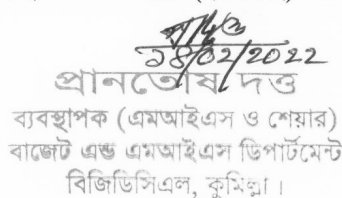 ১৪/০২/2022
প্রানতোষ দত্ত
ব্যবস্থাপক (এমআইএস ও শেয়ার)
বাজেট এন্ড এমআইএস ডিপার্টমেন্ট
বিজিডিসিএল, কুমিল্লা।